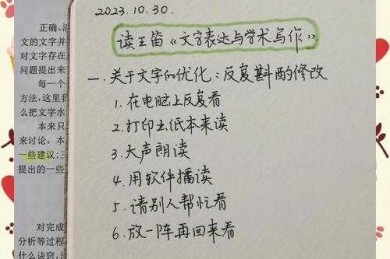 正确、
文的文字并
对文字存在
问题提出来
每一个
方法,这里我
么把文字水
本来只
来讨论。本
一些建议;三
提出的一些
对完成
分析等过程
什么诀窍,
2023.10.30.
读王笛《文字表达与学术写作》
一.关于文字的优化:反复斟酌修改
1.在电脑上反复看
2.打印出纸本来读
3.大声朗读
4.用软件播读
5.请别人帮忙看
6.放一阵再回来看